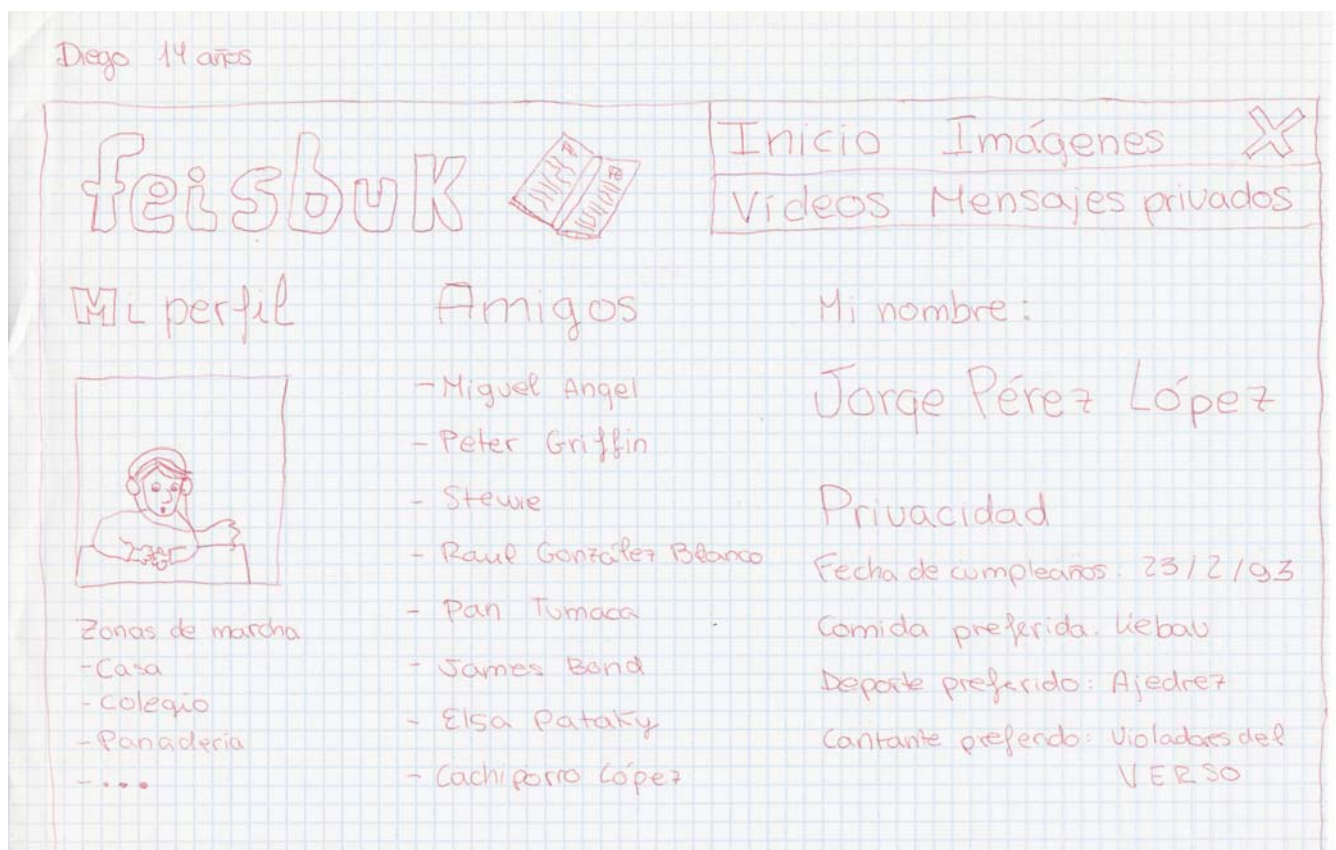 Diego 14 años
feisbuk
Inicio Imágenes X
Vídeos Mensajes privados
Mi perfil
Zonas de marcha
- Casa
- Colegio
- Panadería
- ...
Amigos
- Miguel Angel
- Peter Griffin
- Stewie
- Raul González Blanco
- Pan Tumaca
- James Bond
- Elsa Pataky
- Cachiporro López
Mi nombre:
Jorge Pérez López
Privacidad
Fecha de cumpleaños: 23/2/93
Comida preferida: Kebav
Deporte preferido: Ajedrez
Cantante preferido: Violadores del
VERSO